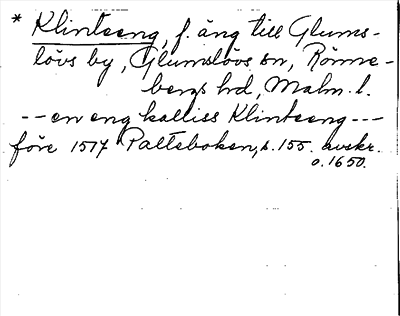 * Klintseng, f. äng till Glums-
lövs by, Glumslövs sn, Rönne-
bergs hd, Malm. l.
-- en eng kalliss Klintseng ---
före 1517 Palteboken, s. 155. avskr.
o. 1650.